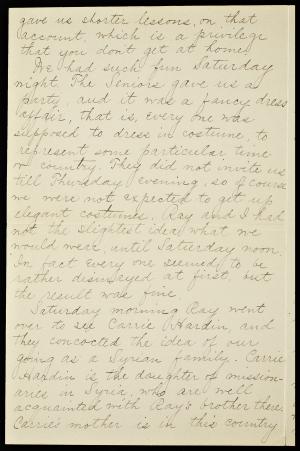 gave us shorter lessons, on that
account, which is a privilege
that you don't get at home.
We had such fun Saturday
night. The Seniors gave us a
party, and it was a fancy dress
affair, that is, every one was
supposed to dress in costume, to
represent some particular time
or country. They did not invite us
till Thursday evening, so of course
we were not expected to get up
elegant costumes. Ray and I had
not the slightest idea what we
would wear, until Saturday noon.
In fact every one seemed to be
rather dismayed at first, but
the result was fine.
Saturday morning Ray went
over to see Carrie Hardin, and
they concocted the idea of our
going as a Syrian family. Carrie
Hardin is the daughter of mission-
aries in Syria, who are well
acquainted with Ray's brother there.
Carrie's mother is in this country